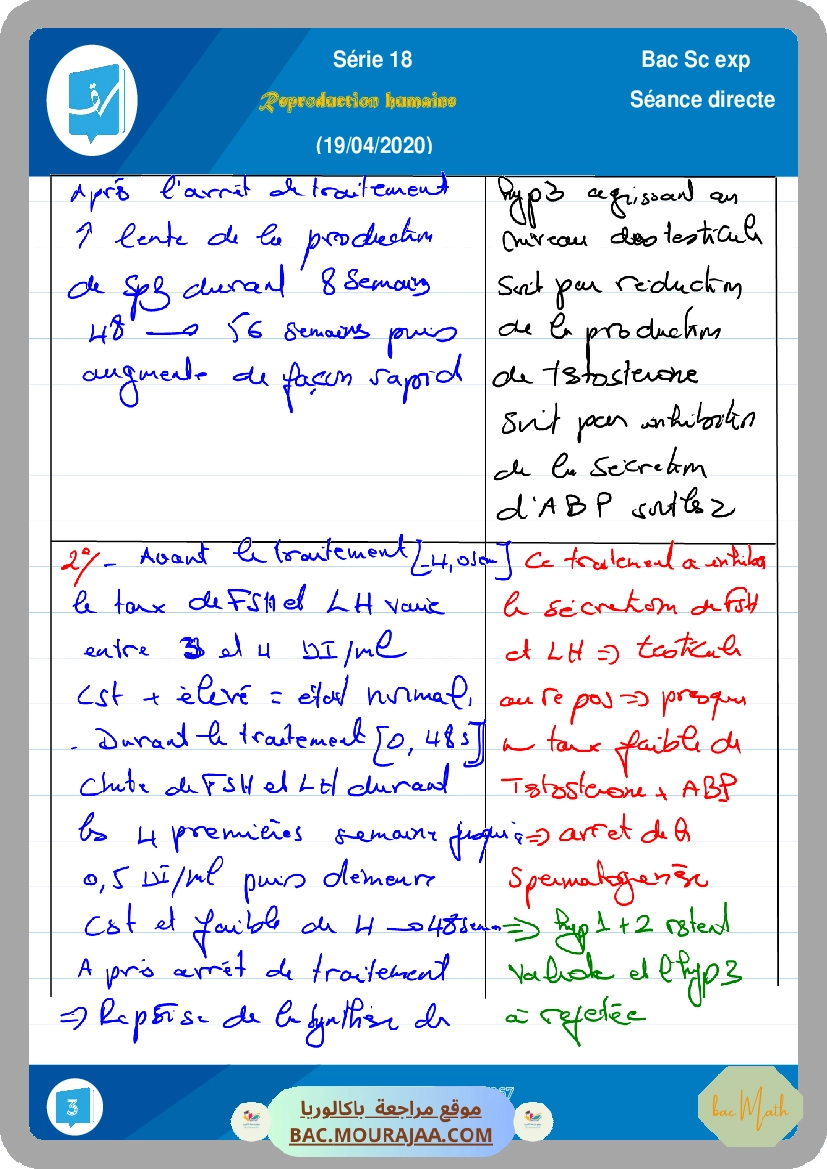 Série 18
Bac Sc exp
Reproduction humaine
Séance directe
(19/04/2020)
Après l'arrêt de traitement
↑ lente de la production
de Spz durant 8 Semains
48 → 56 semaines puis
augmente de façon rapid
hyp3 agissant au
niveau des testicul
Soit par reduction
de la production
de Tstosterone
Soit par inhibition
de la Sécretion
d'ABP soit les 2
2°/ - Avant le traitement [-4, 0 sem]
le taux de FSH et LH varie
entre 3 et 4 UI/ml
Cst + élevé = état normal,
- Durant le traitement [0, 48s]
Chute de FSH et LH durant
les 4 premières semaine jusqu'à
0,5 UI/ml puis demeure
Cst et faible de 4 → 48 sem
Après arrêt de traitement
⇒ Reprise de la synthèse de
Ce traitement a inhibé
la sécretion de FSH
et LH ⇒ testicule
au repos ⇒ presque
un taux faible de
Tstosterone + ABP
⇒ arret de la
Spermatogenèse
⇒ hyp 1 + 2 restent
Valide et l'hyp3
à rejetée
3
موقع مراجعة باكالوريا
BAC.MOURAJAA.COM
bac Math